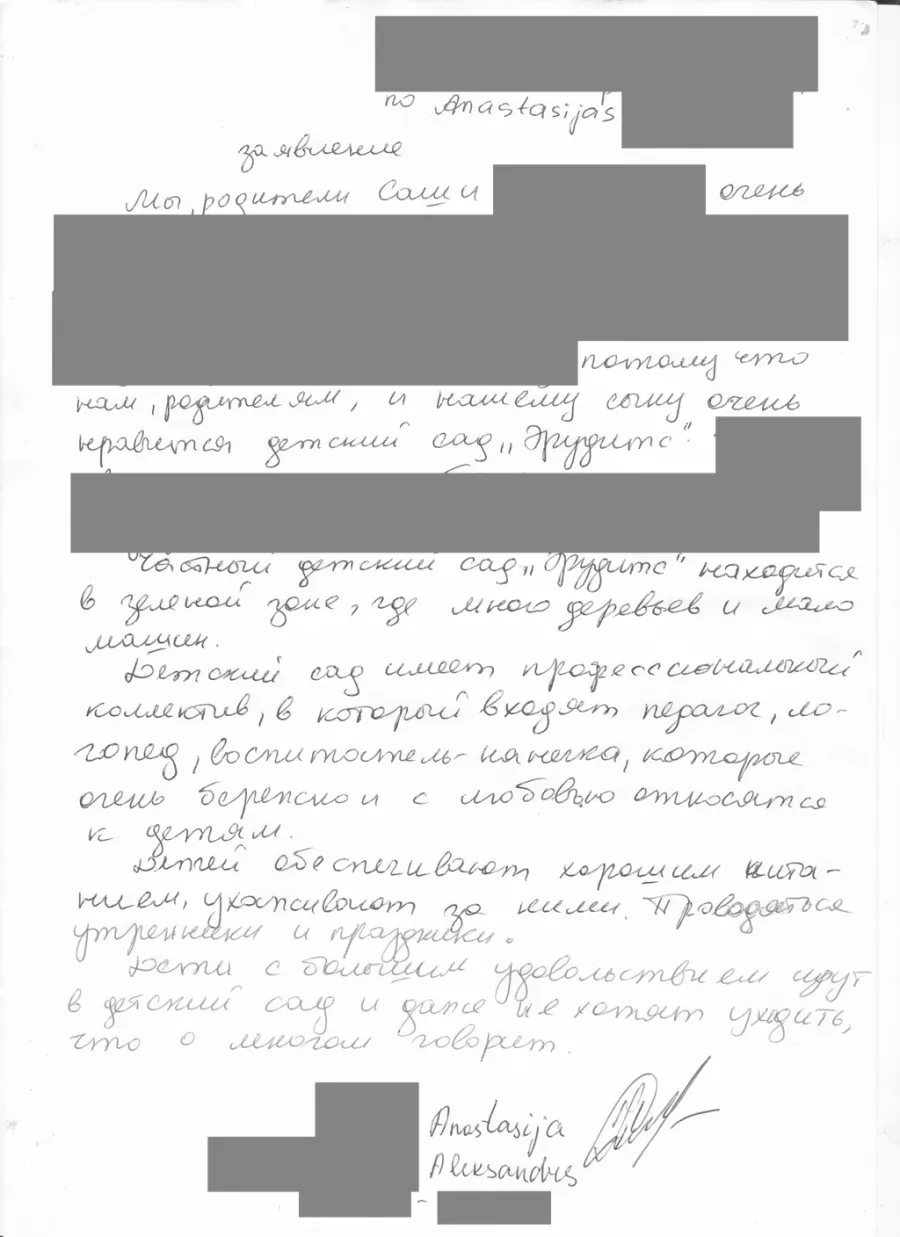 по Anastasijas
заявление
Мы, родители Саши очень
потому что
нам, родителям, и нашему сыну очень
нравится детский сад „Эрудитс“
Частный детский сад „Эрудитс“ находится
в зеленой зоне, где много деревьев и мало
машин.
Детский сад имеет профессиональный
коллектив, в который входят педагог, ло-
гопед, воспитатель-нянечка, которые
очень бережно и с любовью относятся
к детям.
Детей обеспечивают хорошим пита-
нием, ухаживают за ними. Проводяться
утренники и праздники.
Дети с большим удовольствием идут
в детский сад и даже не хотят уходить,
что о многом говорит.
Anastasija
Aleksandrs